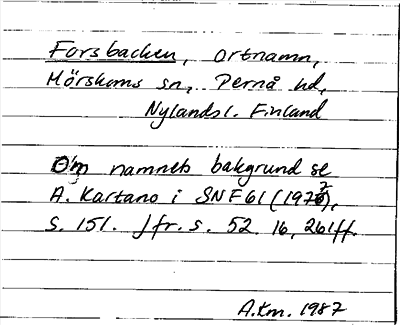 Forsbacken, ortnamn,
Mörskoms sn, Pernå hd,
Nylandsl. Finland
Om namnets bakgrund se
A. Kartano i SNF 61 (1972),
s. 151. Jfr. s. 52. 16, 261ff.
A.tm. 1987